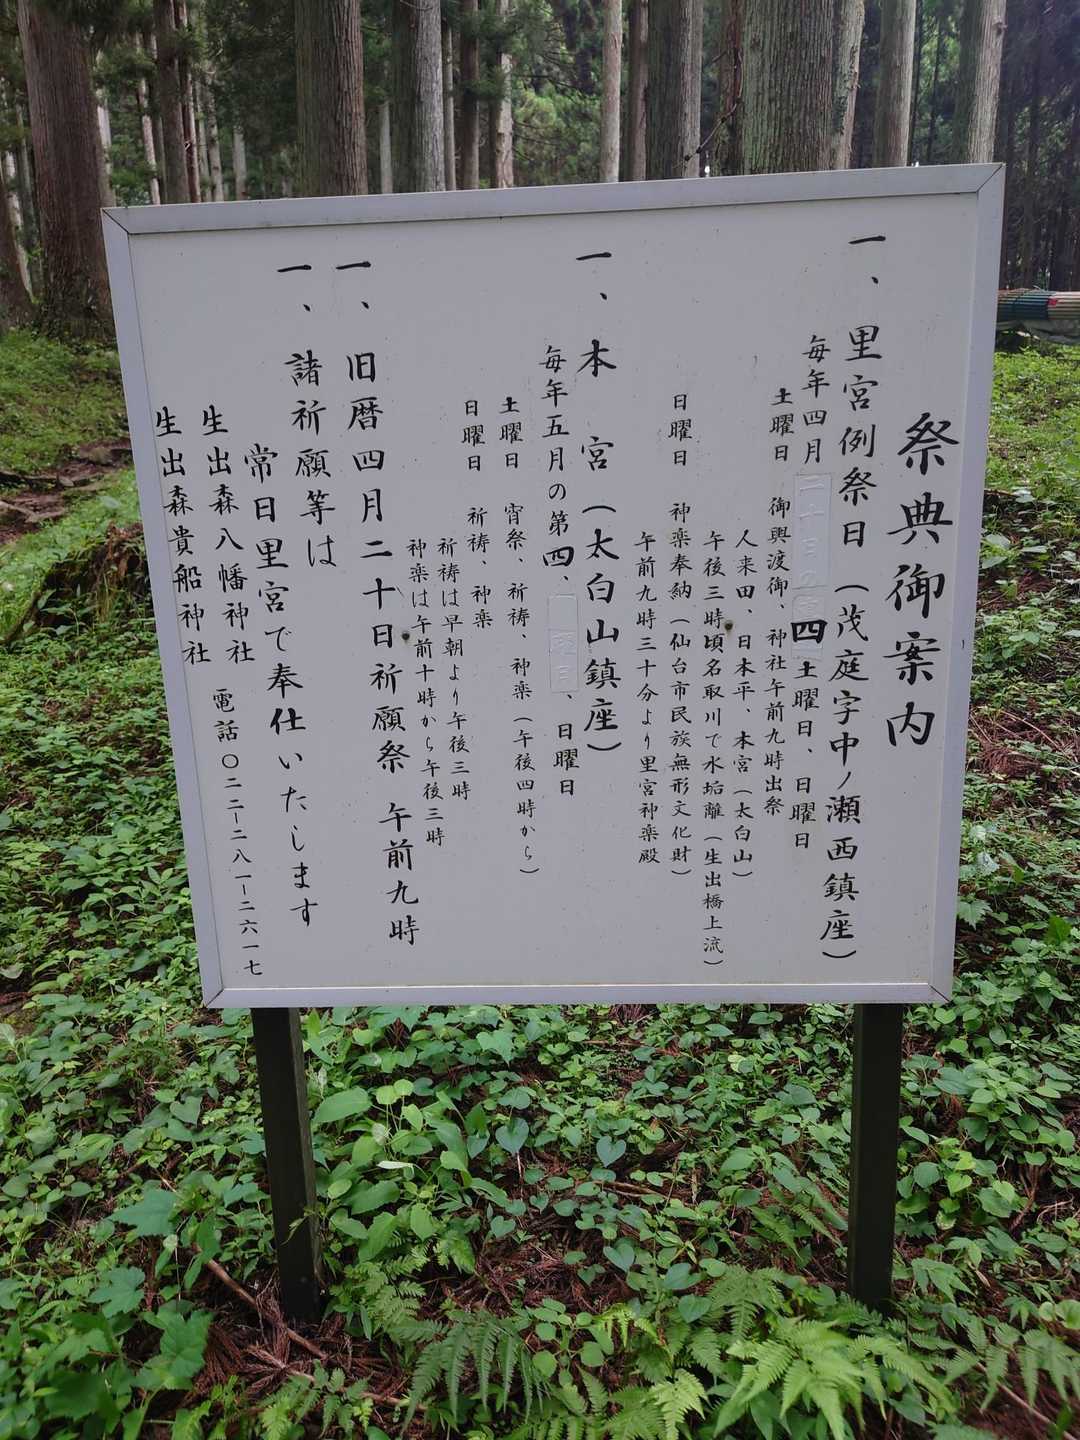 祭典御案内
一、里宮例祭日（茂庭字中ノ瀬西鎮座）
毎年四月 四土曜日、日曜日
土曜日 御輿渡御、神社午前九時出祭
人来田、日本平、本宮（太白山）
午後三時頃名取川で水垢離（生出橋上流）
日曜日 神楽奉納（仙台市民族無形文化財）
午前九時三十分より里宮神楽殿
一、本宮（太白山鎮座）
毎年五月の第四、 、日曜日
土曜日 宵祭、祈祷、神楽（午後四時から）
日曜日 祈祷、神楽
祈祷は早朝より午後三時
神楽は午前十時から午後三時
一、旧暦四月二十日祈願祭 午前九時
一、諸祈願等は
常日里宮で奉仕いたします
生出森八幡神社 電話〇二二－二八一－二六一七
生出森貴船神社